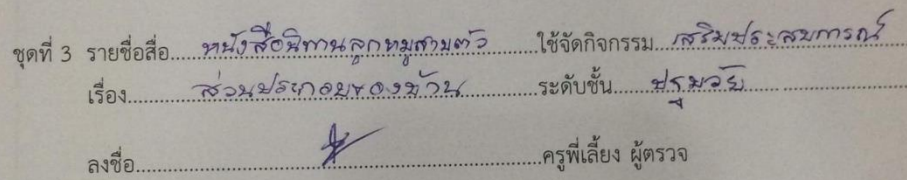 ชุดที่ 3 รายชื่อสื่อ....หนังสือนิทานลูกหมูสามตัว....ใช้จัดกิจกรรม....เสริมประสบการณ์
เรื่อง....ส่วนประกอบของบ้าน....ระดับชั้น....ปฐมวัย....
ลงชื่อ........ครูพี่เลี้ยง ผู้ตรวจ